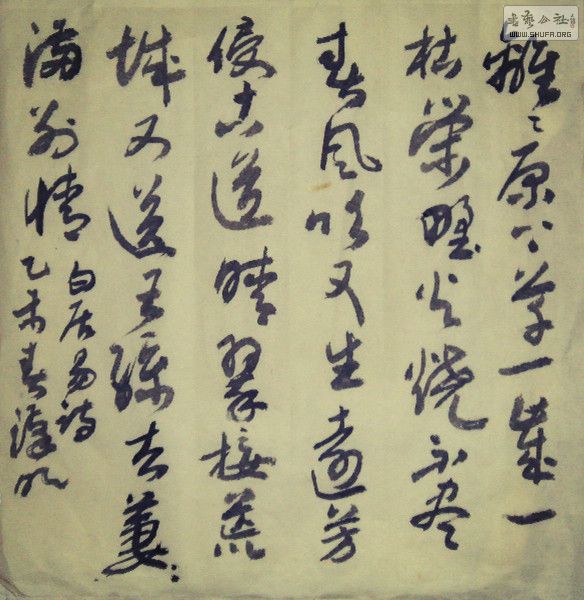 離〻原上草一歲一
枯榮野火燒不盡
春風吹又生遠芳
侵古道晴翠接荒
城又送王孫去萋〻
滿別情
白居易詩
乙未春
書藝公社
WWW.SHUFA.ORG